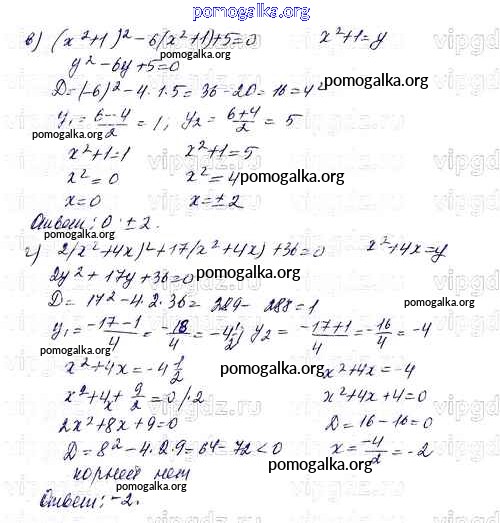 pomogalka.org
в) (x²+1)²-6(x²+1)+5=0 x²+1=y
y²-6y+5=0
pomogalka.org
D=(-6)²-4·1·5=36-20=16=4²
pomogalka.org
y₁=(6-4)/2=1; y₂=(6+4)/2=5
pomogalka.org
x²+1=1 x²+1=5
x²=0 x²=4
pomogalka.org
x=0 x=±2
Ответ: 0; ±2.
pomogalka.org
г) 2(x²+4x)²+17(x²+4x)+36=0 x²+4x=y
2y²+17y+36=0 pomogalka.org
D=17²-4·2·36=289-288=1
pomogalka.org
y₁=(-17-1)/4=-18/4=-4 1/2; y₂=(-17+1)/4=-16/4=-4
pomogalka.org
x²+4x=-4 1/2 x²+4x=-4
pomogalka.org
x²+4x+9/2=0 /·2 x²+4x+4=0
2x²+8x+9=0 D=16-16=0
pomogalka.org
D=8²-4·2·9=64-72<0 x=-4/2=-2
корней нет pomogalka.org
pomogalka.org
Ответ: -2.
pomogalka.org